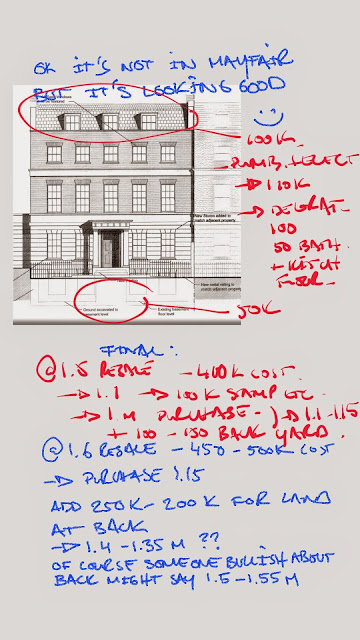 OK IT'S NOT IN MAYFAIR
BUT IT'S LOOKING GOOD
100K
PLUMB. + ELECT
110K
DECORAT.
100
50 BATH
+ KITCH
FLOOR
New Stucco added to
match adjacent property
New metal railing to
match adjacent property
Ground excavated to
basement level
Existing basement
floor level
50K
FINAL:
@ 1.5 RESALE - 400K COST
→ 1.1 → 100K STAMP ETC
→ 1 M PURCHASE → 1.1 - 1.15
+ 100 - 150 BACK YARD.
@ 1.6 RESALE - 450 - 500K COST
→ PURCHASE 1.15
ADD 250K - 200K FOR LAND
AT BACK
→ 1.4 - 1.35 M ??
OF COURSE SOMEONE BULLISH ABOUT
BACK MIGHT SAY 1.5 - 1.55 M